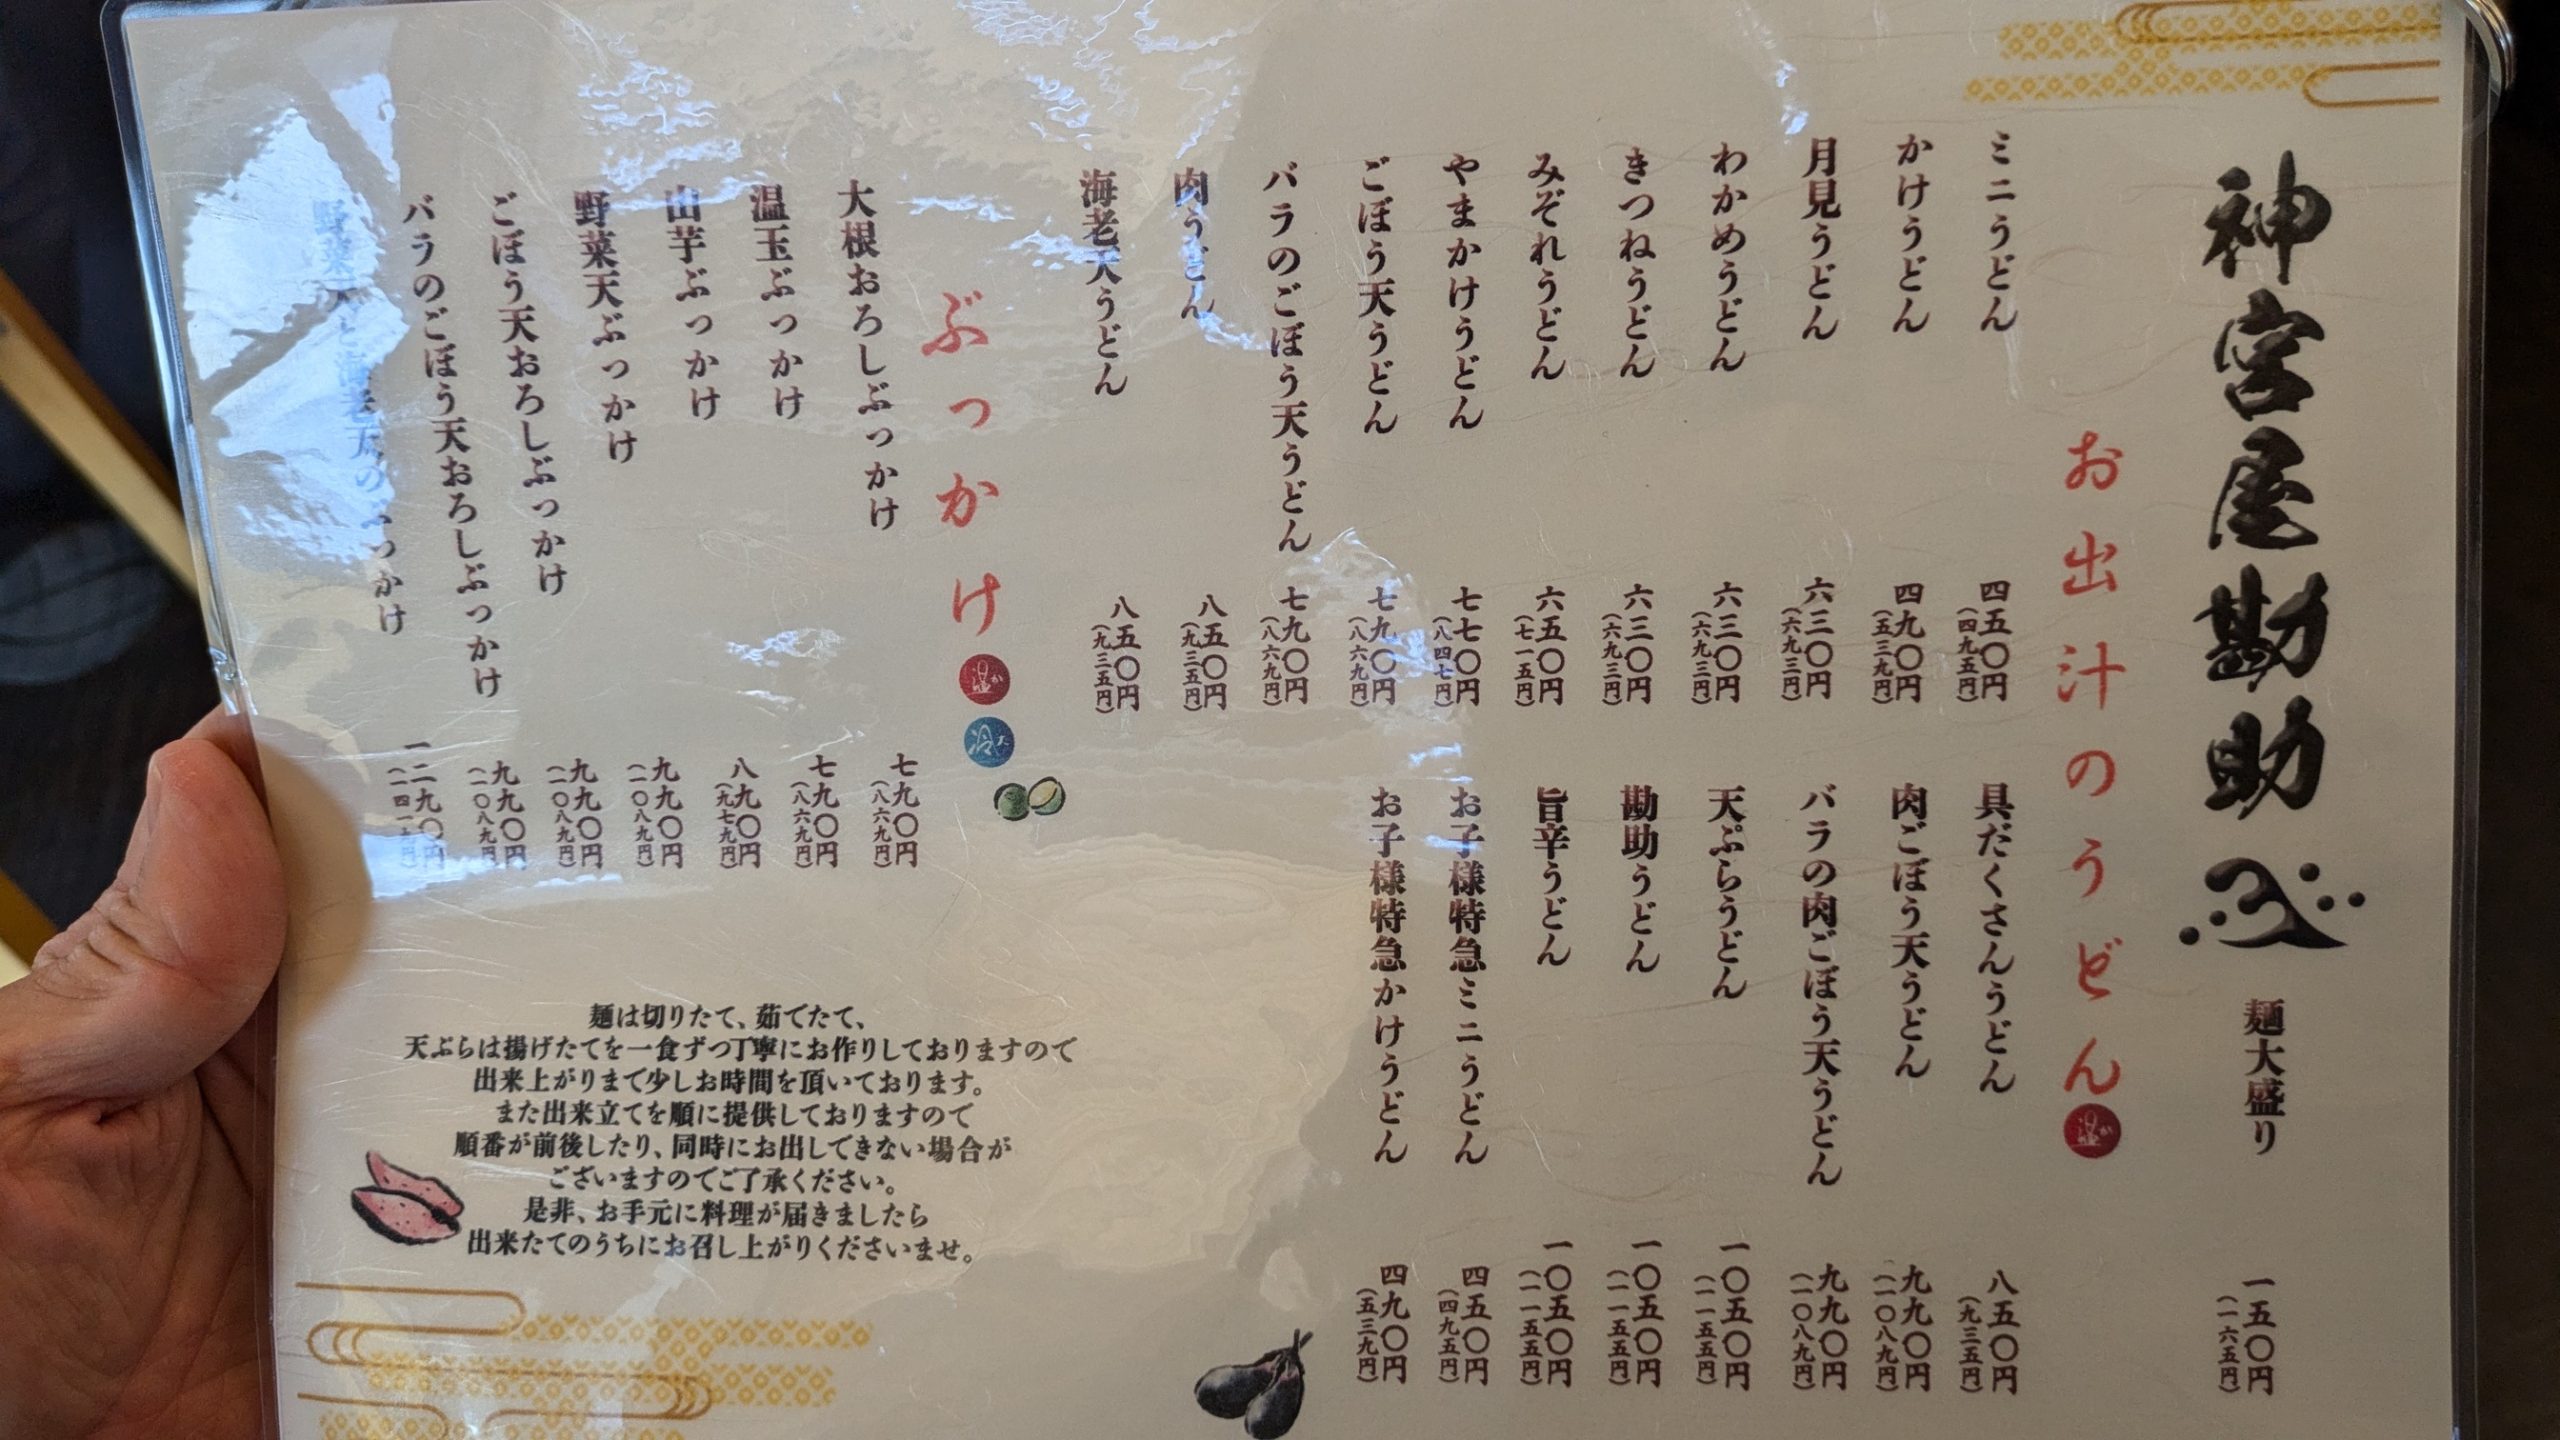 神宮屋勘助
麺大盛り
一五〇円
(一六五円)
お出汁のうどん 温か
ミニうどん
四五〇円
(四九五円)
かけうどん
四九〇円
(五三九円)
月見うどん
六三〇円
(六九三円)
わかめうどん
六三〇円
(六九三円)
きつねうどん
六三〇円
(六九三円)
みぞれうどん
六五〇円
(七一五円)
やまかけうどん
七七〇円
(八四七円)
ごぼう天うどん
七九〇円
(八六九円)
バラのごぼう天うどん
七九〇円
(八六九円)
肉うどん
八五〇円
(九三五円)
海老天うどん
八五〇円
(九三五円)
具だくさんうどん
八五〇円
(九三五円)
肉ごぼう天うどん
九九〇円
(一〇八九円)
バラの肉ごぼう天うどん
九九〇円
(一〇八九円)
天ぷらうどん
一〇五〇円
(一一五五円)
勘助うどん
一〇五〇円
(一一五五円)
旨辛うどん
一〇五〇円
(一一五五円)
お子様特急ミニうどん
四五〇円
(四九五円)
お子様特急かけうどん
四九〇円
(五三九円)
ぶっかけ 温か 冷た
大根おろしぶっかけ
七九〇円
(八六九円)
温玉ぶっかけ
七九〇円
(八六九円)
山芋ぶっかけ
八九〇円
(九七九円)
野菜天ぶっかけ
九九〇円
(一〇八九円)
ごぼう天おろしぶっかけ
九九〇円
(一〇八九円)
バラのごぼう天おろしぶっかけ
九九〇円
(一〇八九円)
野菜天と海老天のぶっかけ
一二九〇円
麺は切りたて、茹でたて、
天ぷらは揚げたてを一食ずつ丁寧にお作りしておりますので
出来上がりまで少しお時間を頂いております。
また出来立てを順に提供しておりますので
順番が前後したり、同時にお出しできない場合が
ございますのでご了承ください。
是非、お手元に料理が届きましたら
出来たてのうちにお召し上がりくださいませ。